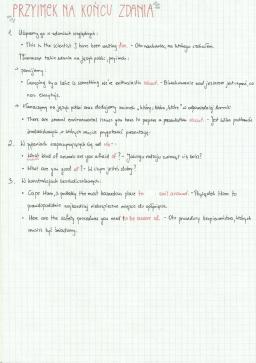 PRZYIMEK NA KOŃCU ZDANIA
1. Używamy go w zdaniach względnych:
• This is the scientist I have been waiting for. - Oto naukowiec, na którego czekałem.
Tłumacząc takie zdania na język polski, przyimek:
→ pomijamy:
• Camping by a lake is something we're enthusiastic about. - Biwakowanie nad jeziorem jest czymś, co
nas
→ tłumaczymy na język polski oraz dodajemy zaimek „który, która, które" w odpowiedniej formie:
• There are several environmental issues you have to prepare a presentation about. - Jest kilka problemów
środowiskowych, o których musisz przygotować prezentację.
2. W pytaniach zaczynających się od wh- :
• What kind of animals are you afraid of? - Jakiego rodzaju zwierząt się boisz?
• What are you good at? - W czym jesteś dobry?
3. W konstrukcjach bezokolicznikowych:
• Cape Horn is probably the most hazardous place to sail around. - Przylądek Horn to
prawdopodobnie najbardziej niebezpieczne miejsce do opłynięcia.
• Here are the safety procedures you need to be aware of. - Oto procedury bezpieczeństwa, których
musisz być świadomy.